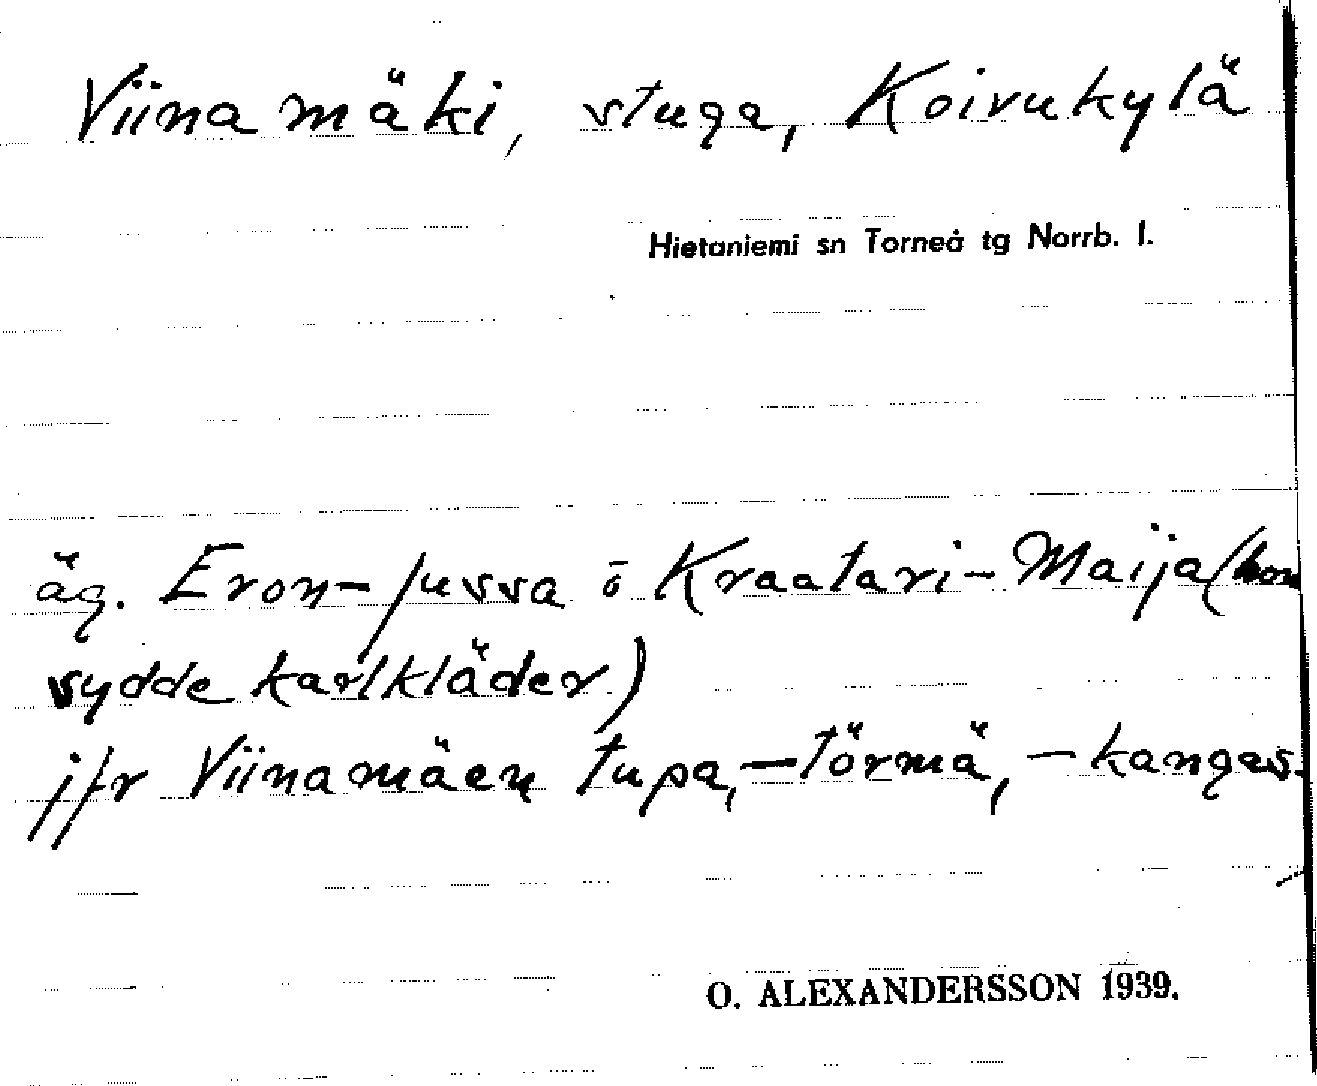 Viinamäki, stuga, Koivukylä
Hietaniemi sn Torneå tg Norrb. l.
äg. Eron-Jussa o Kraatari-Maija (hon
sydde karlkläder)
jfr Viinamäen tupa, -törmä, -kangas.
O. ALEXANDERSSON 1939.